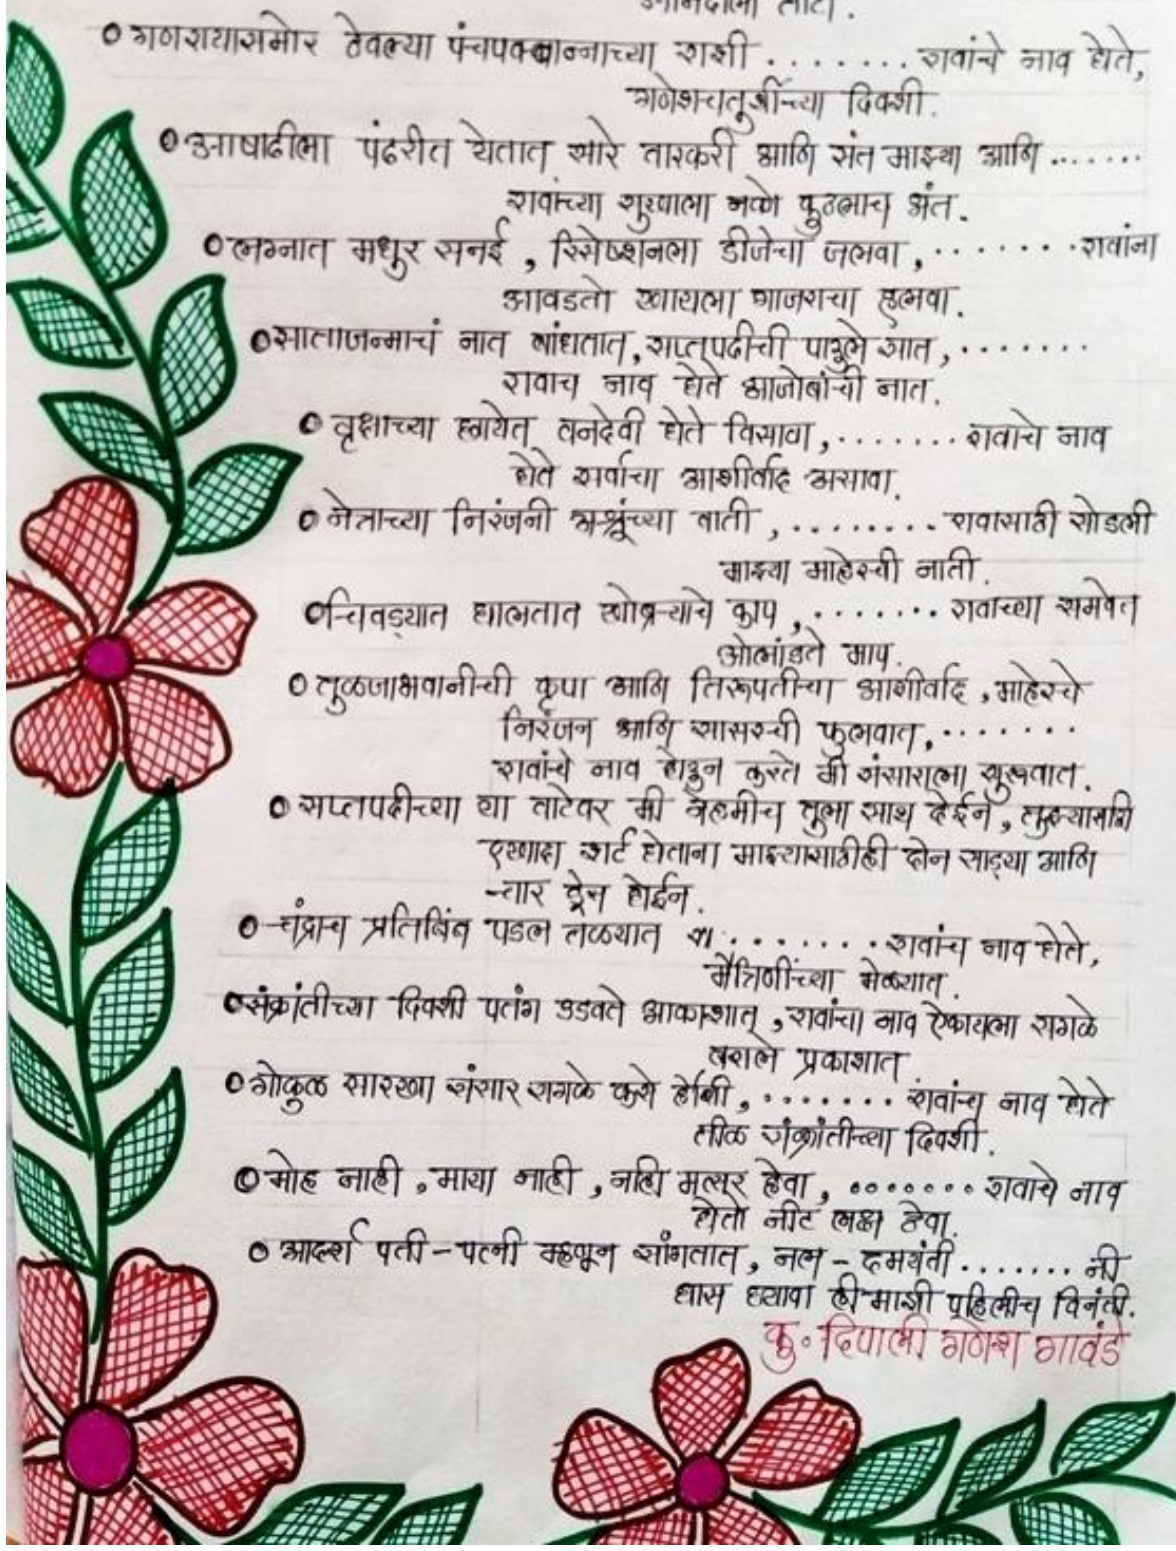 आनंदाला तोटा.
० गणरायासमोर ठेवल्या पंचपक्वान्नाच्या राशी ........ रावांचे नाव घेते,
गणेशचतुर्थीच्या दिवशी.
० आषाढीला पंढरीत येतात सारे वारकरी आणि संत माझ्या आणि .......
रावांच्या सुखाला नको कुठलाच अंत.
० लग्नात मधुर सनई, रिसेप्शनला डीजेचा जलवा, ........ रावांना
आवडतो खायला गाजराचा हलवा.
० साताजन्माचं नात बांधतात, सप्तपदीची पाऊले सात, .......
रावाच नाव घेते आजोबांची नात.
० वृक्षाच्या छायेत वनदेवी घेते विसावा, ....... रावाचे नाव
घेते सर्वाचा आशीर्वाद असावा.
० नेत्राच्या निरंजनी अश्रूंच्या वाती, ........ रावासाठी सोडली
माझ्या माहेरची नाती.
० चिवड्यात घालतात खोबऱ्याचे काप, ....... रावाच्या समवेत
ओलांडते माप.
० तुळजाभवानीची कृपा आणि तिरूपतीचा आशीर्वाद, माहेरचे
निरंजन आणि सासरची फुलवात, .......
रावांचे नाव घेऊन करते मी संसाराला सुरूवात.
० सप्तपदीच्या या वाटेवर मी नेहमीच तुला साथ देईन, तुझ्यासाठी
एखादा शर्ट घेताना माझ्यासाठीही दोन साड्या आणि
चार ड्रेस घेईन.
० चंद्राच प्रतिबिंब पडल तळ्यात ........ रावांच नाव घेते,
मैत्रिणींच्या मेळ्यात.
० संक्रांतीच्या दिवशी पतंग उडवते आकाशात, रावांचा नाव ऐकायला सगळे
बसले प्रकाशात
० गोकुळ सारखा संसार सगळे कसे हौशी, ....... रावांच नाव घेते
तीळ संक्रांतीच्या दिवशी.
० मोह नाही, माया नाही, नाही मत्सर हेवा, ....... रावाचे नाव
घेतो नीट लक्ष ठेवा.
० आदर्श पती - पत्नी म्हणून सांगतात, नल - दमयंती ....... नी
घास घ्यावा ही माझी पहिलीच विनंती.
कु. दिपाली गणेश गावंडे